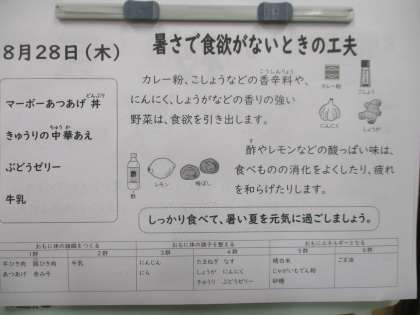 8月28日(木)
暑さで食欲がないときの工夫
マーボーあつあげ丼
どんぶり
きゅうりの中華あえ
ちゅうか
ぶどうゼリー
牛乳
カレー粉、こしょうなどの香辛料や、
こうしんりょう
にんにく、しょうがなどの香りの強い
野菜は、食欲を引き出します。
カレー粉
こしょう
にんにく
しょうが
酢やレモンなどの酸っぱい味は、
す
食べものの消化をよくしたり、疲れ
を和らげたりします。
酢
レモン
梅ぼし
しっかり食べて、暑い夏を元気に過ごしましょう。
おもに体の組織をつくる
おもに体の調子を整える
おもにエネルギーとなる
1群 2群 3群 4群 5群 6群
牛ひき肉 豚ひき肉 牛乳 にんじん たまねぎ なす 精白米 ごま油
あつあげ 赤みそ にん しょうが にんにく じゃがいもでん粉
きゅうり ぶどうゼリー 砂糖